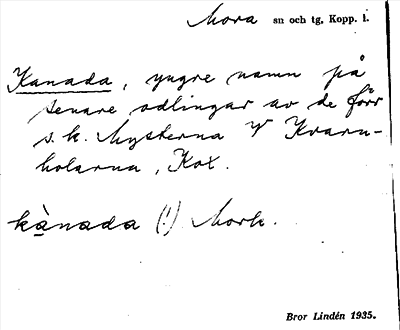 Mora sn och tg, Kopp. l.
Kanada, yngre namn på
senare odlingar av de förr
s.k. Mysterna V Kvarn-
holarna, Kox.
kànada (!) Mork.
Bror Lindén 1935.